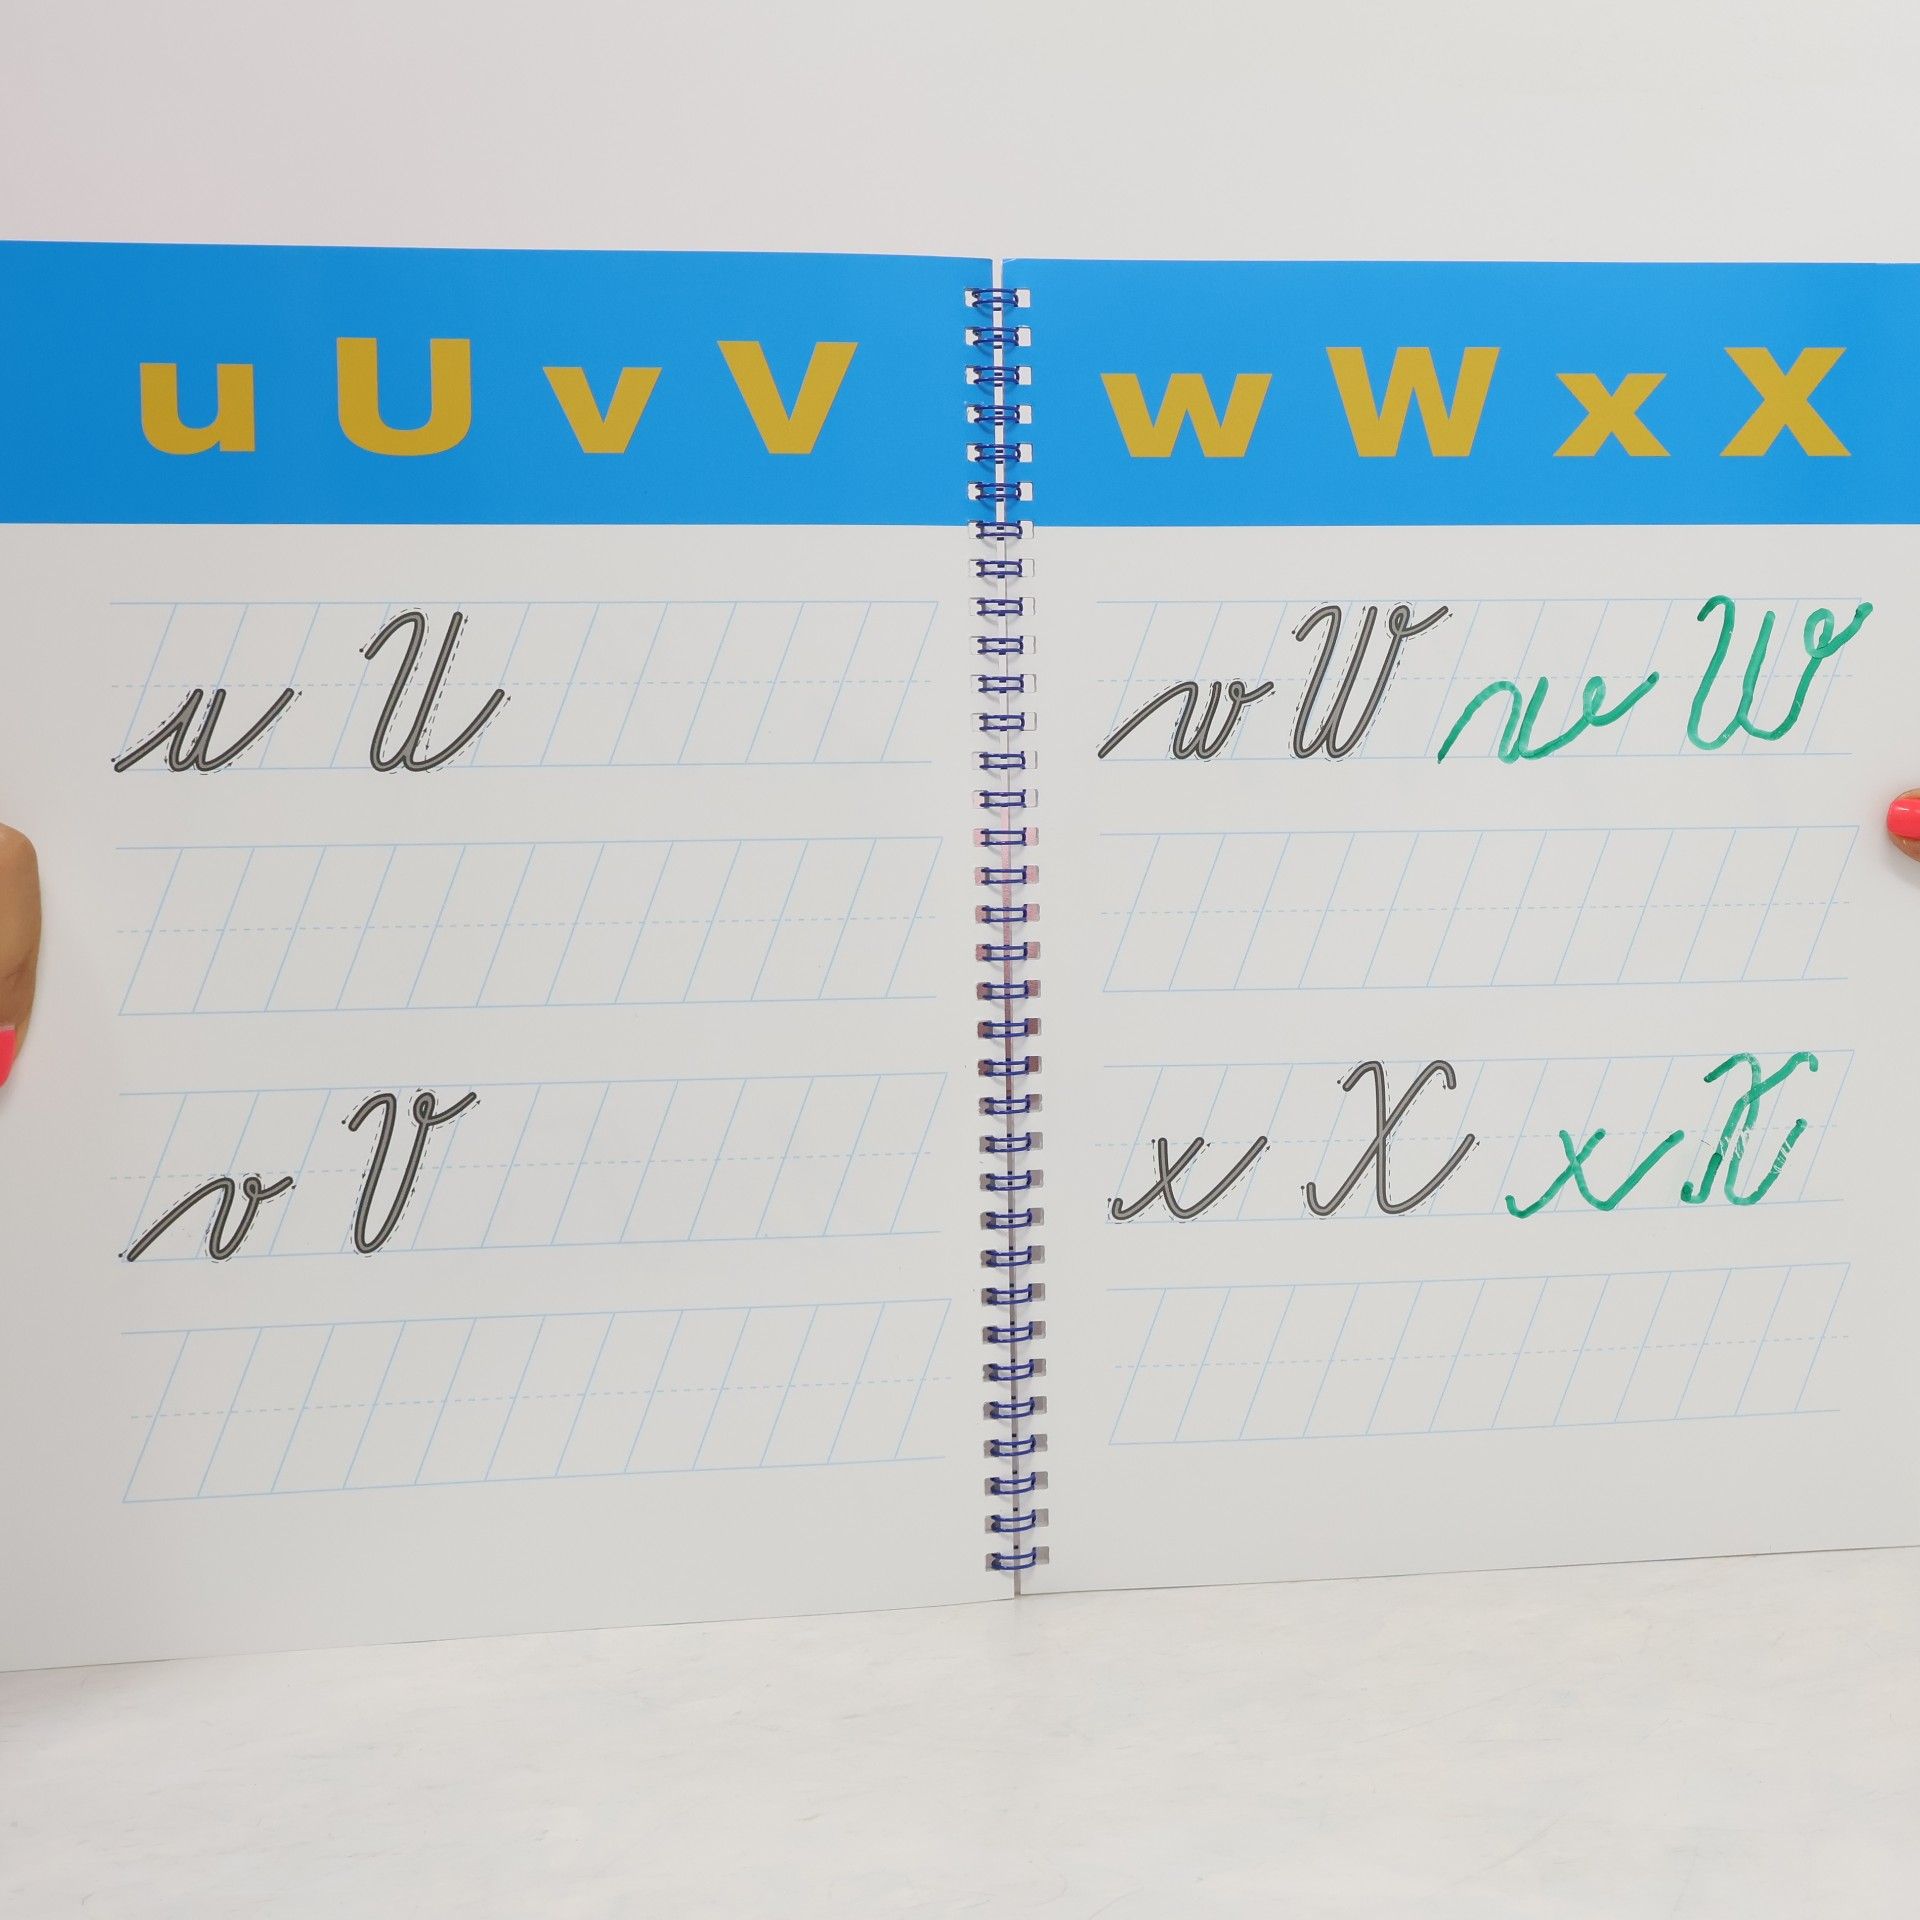 u U v V
u U
v V
w W x X
w W w W
x X x X